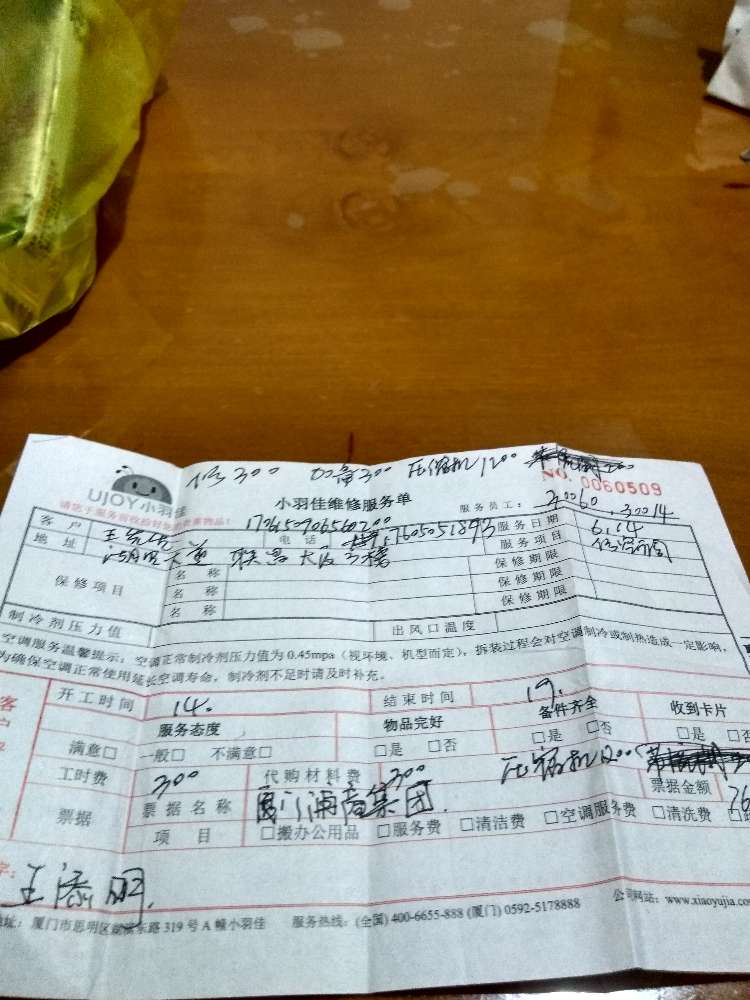 修300 加雪300 压缩机1200
UJOY小羽佳
小羽佳维修服务单
NO. 0060509
服务员工: 30060.30014
客户 电话 17605051893 服务日期 6.14
地址 三楼 服务项目
保修项目 名称 保修期限
名称 保修期限
名称 保修期限
制冷剂压力值 出风口温度
空调服务温馨提示: 空调正常制冷剂压力值为 0.45mpa (视环境、机型而定), 拆装过程会对空调制冷或制热造成一定影响,
为确保空调正常使用延长空调寿命, 制冷剂不足时请及时补充。
开工时间 14. 结束时间 19.
服务态度 物品完好 备件齐全 收到卡片
满意□ 一般□ 不满意□ □是 □否 □是 □否 □是 □否
工时费 300 代购材料费 300 压缩机
票据 票据名称 集团. 票据金额
项目 □搬办公用品 □服务费 □清洁费 □空调服务费 □清洗费
王添明.
地址: 厦门市思明区 东路 319 号 A 幢小羽佳 服务热线: (全国) 400-6655-888 (厦门) 0592-5178888 公司网站: www.xiaoyujia.co